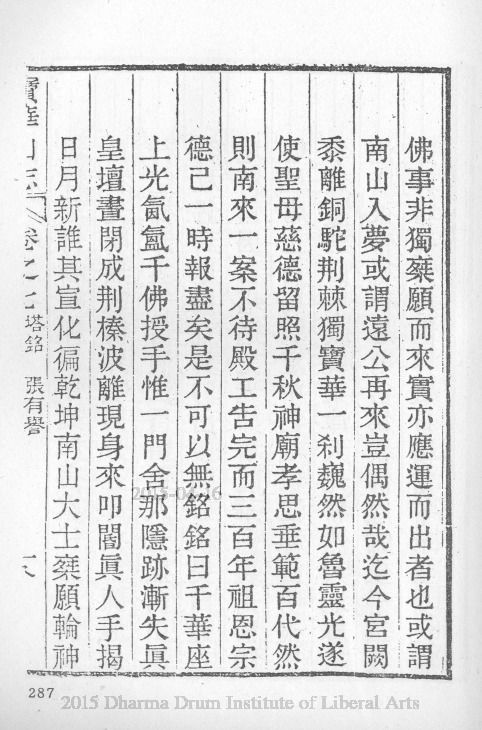 佛事非獨椉願而來實亦應運而出者也或謂
南山入夢或謂遠公再來豈偶然哉迄今宮闕
黍離銅駝荆棘獨寶華一刹巍然如魯靈光遂
使聖母慈德留照千秋神廟孝思垂範百代然
則南來一案不待殿工告完而三百年祖恩宗
德己一時報盡矣是不可以無銘銘曰千華座
上光氤氳千佛授手惟一門舍那隱跡漸失眞
皇壇晝閉成荆榛波離現身來叩閽眞人手揭
日月新誰其宣化徧乾坤南山大士椉願輪神
寶華山志 卷之七 塔銘 張有譽 一八
287
2015 Dharma Drum Institute of Liberal Arts